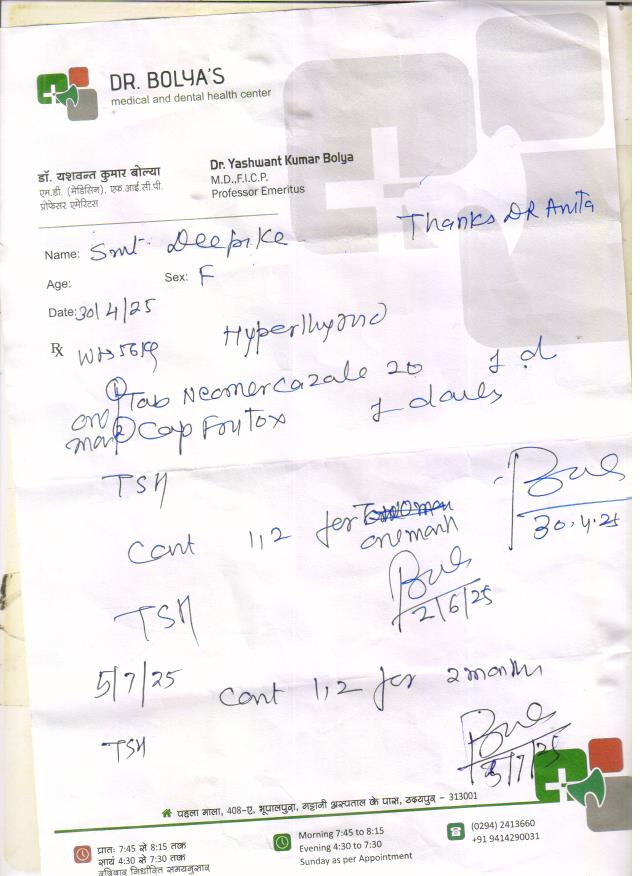 DR. BOLYA'S
medical and dental health center
डॉ. यशवन्त कुमार बोल्या
एम.डी. (मेडिसिन), एफ.आई.सी.पी.
प्रोफेसर एमेरिटस
Dr. Yashwant Kumar Bolya
M.D.,F.I.C.P.
Professor Emeritus
Thanks DR Anita
Name: Smt. Deepike
Age:
Sex: F
Date: 30/4/25
Rx Wt 56 kg
① Tab Neomercazale 20
② Cap
TSH
30.4.25
Cont 1,2 for
one month
2/6/25
TSH
5/7/25 Cont 1,2 for 2 months
TSH
5/7/25
पहला माला, 408-ए, भूपालपुरा, गट्टानी अस्पताल के पास, उदयपुर - 313001
प्रातः 7:45 से 8:15 तक
सायं 4:30 से 7:30 तक
रविवार निर्धारित समयनुसार
Morning 7:45 to 8:15
Evening 4:30 to 7:30
Sunday as per Appointment
(0294) 2413660
+91 9414290031